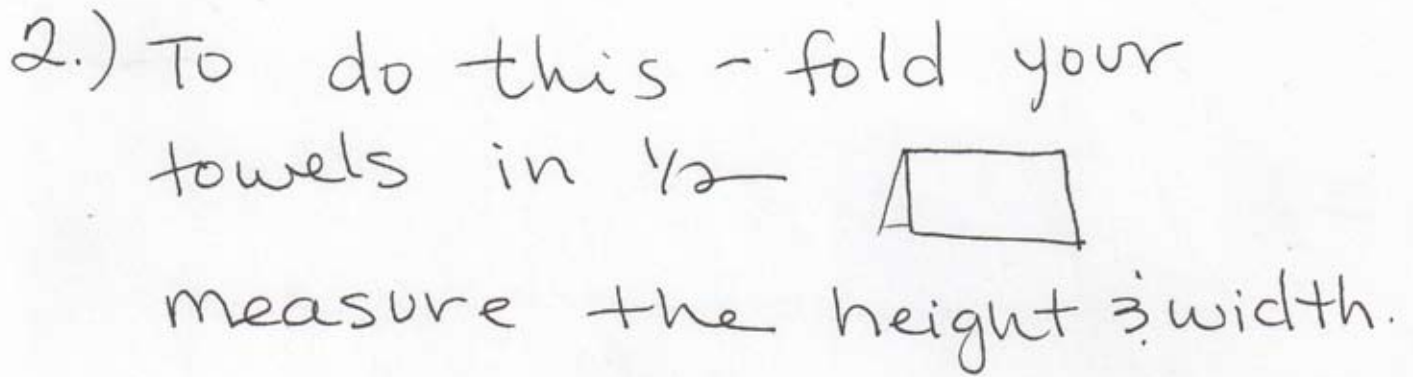 2.) To do this - fold your
towels in 1/2
measure the height & width.